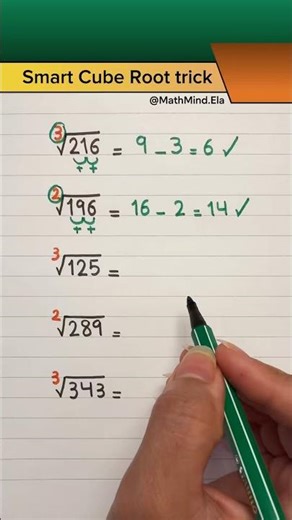 Smart Cube Root trick
@MathMind.Ela
∛216 = 9 - 3 = 6 ✓
+ +
²√196 = 16 - 2 = 14 ✓
+ +
∛125 =
²√289 =
∛343 =